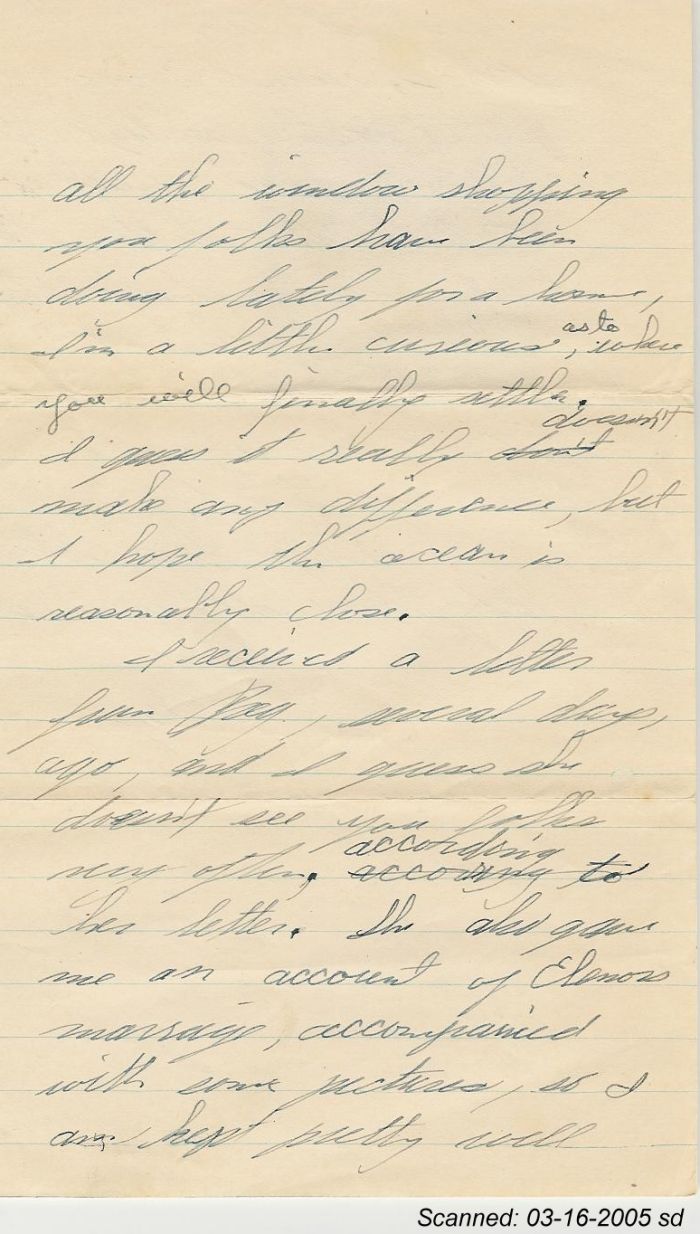 all the window shopping
you folks have been
doing lately for a home,
I'm a little curious, as to where
you will finally settle.
I guess it really don't doesn't
make any difference, but
I hope the ocean is
reasonally close.
I received a letter
from Peg, several days,
ago, and I guess she
doesn't see you folks
very often, accoring according to
her letter. She also gave
me an account of Elenors
marriage, accompanied
with some pictures, so I
am kept pretty well
Scanned: 03-16-2005 sd